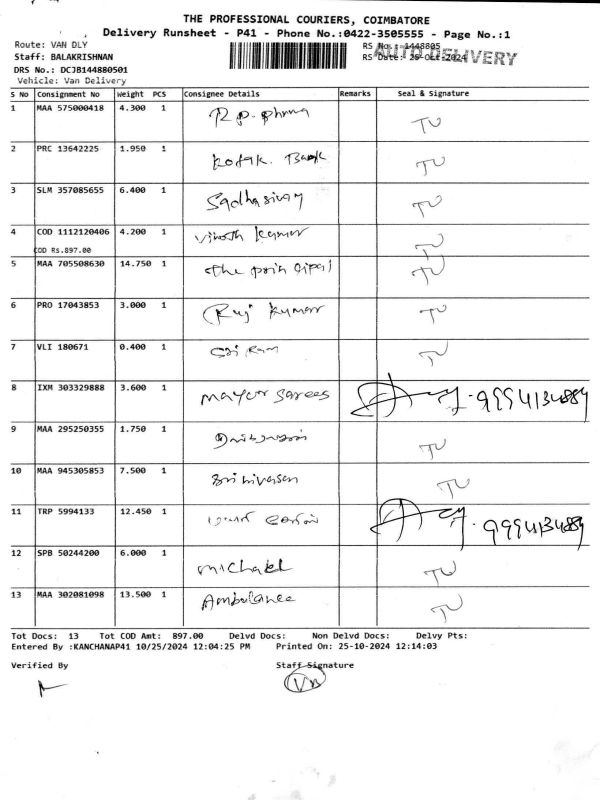 THE PROFESSIONAL COURIERS, COIMBATORE
Delivery Runsheet - P41 - Phone No.:0422-3505555 - Page No.:1
Route: VAN DLY RS No.:1448805
Staff: BALAKRISHNAN RS Date: 25-Oct-2024 AUTO DELIVERY
DRS No.: DCJB144880501
Vehicle: Van Delivery
S No Consignment No Weight PCS Consignee Details Remarks Seal & Signature
1 MAA 575000418 4.300 1 R.P.
2 PRC 13642225 1.950 1 Kotak. Bank
3 SLM 357085655 6.400 1 Sadhasivam
4 COD 1112120406 4.200 1 Vinoth Kumar
COD Rs.897.00
5 MAA 705508630 14.750 1 The prin cipal
6 PRO 17043853 3.000 1 Raj Kumar
7 VLI 180671 0.400 1 Sri Ram
8 IXM 303329888 3.600 1 Mayur Sarees
9 MAA 295250355 1.750 1
10 MAA 945305853 7.500 1 Srinivasan
11 TRP 5994133 12.450 1
12 SPB 50244200 6.000 1 Michael
13 MAA 302081098 13.500 1 Ambulance
Tot Docs: 13 Tot COD Amt: 897.00 Delvd Docs: Non Delvd Docs: Delvy Pts:
Entered By :KANCHANAP41 10/25/2024 12:04:25 PM Printed On: 25-10-2024 12:14:03
Verified By Staff Signature